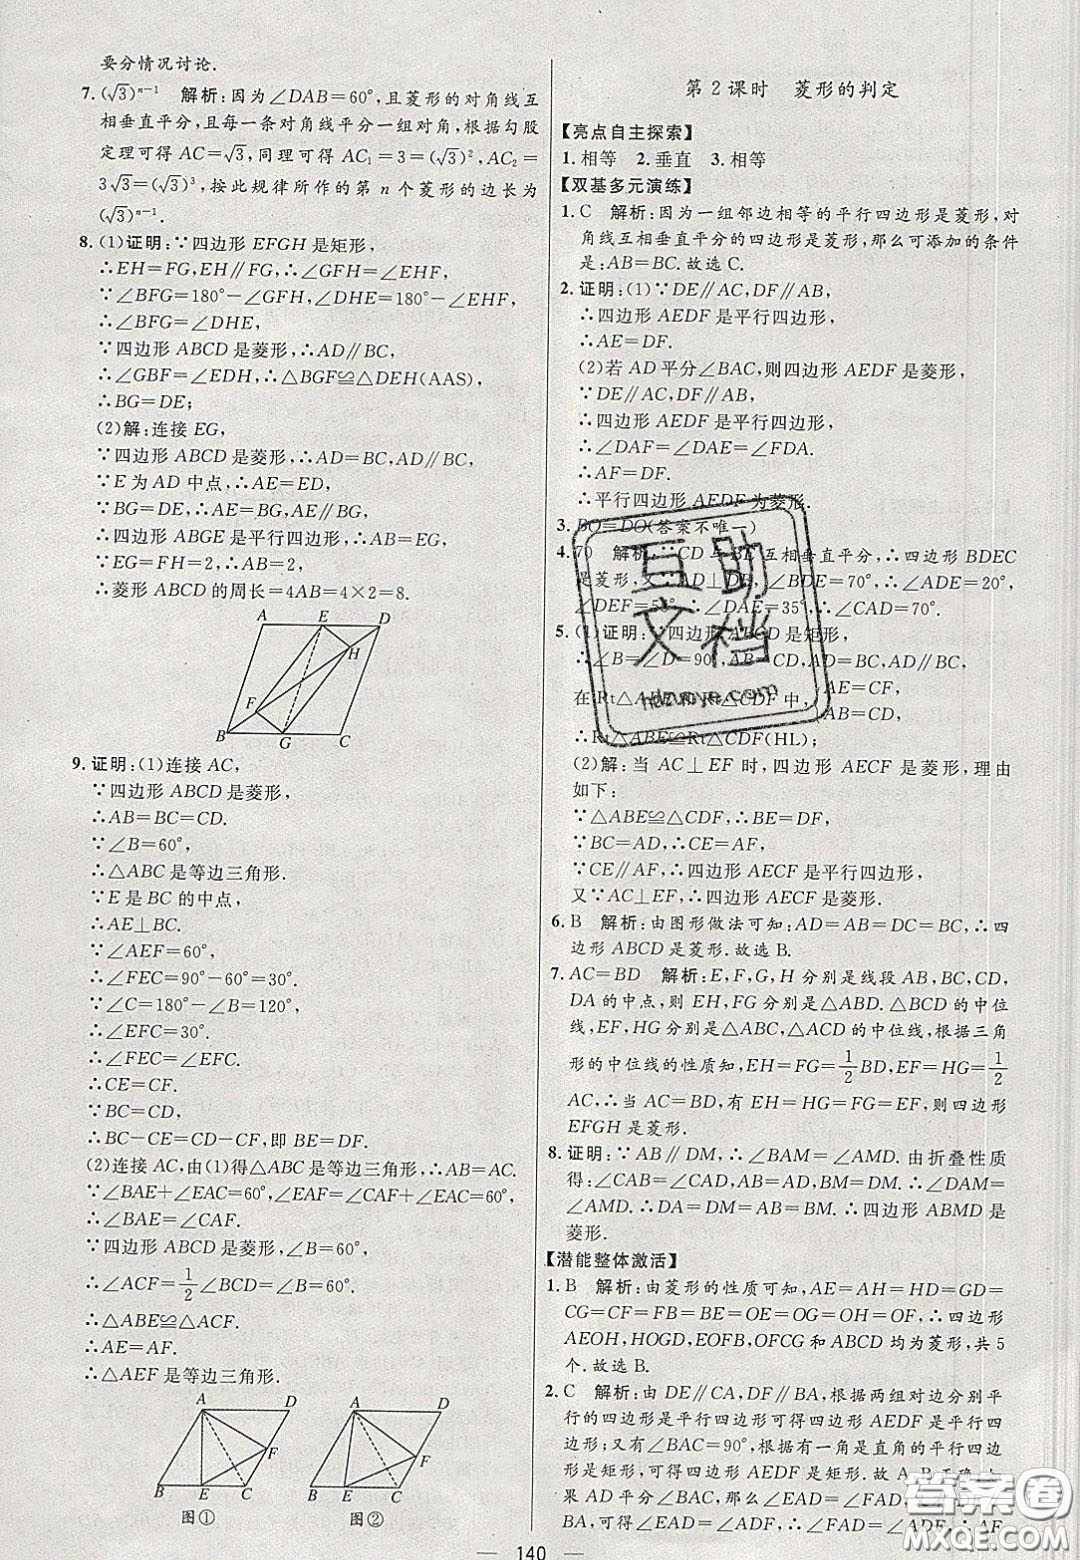 要分情况讨论.
7. (√3)ⁿ⁻¹ 解析:因为∠DAB=60°,且菱形的对角线互
相垂直平分,且每一条对角线平分一组对角,根据勾股
定理可得 AC=√3,同理可得 AC₁=3=(√3)²,AC₂=
3√3=(√3)³,按此规律所作的第 n 个菱形的边长为
(√3)ⁿ⁻¹.
8. (1)证明:∵四边形 EFGH 是矩形,
∴EH=FG,EH∥FG,∴∠GFH=∠EHF,
∴∠BFG=180°-∠GFH,∠DHE=180°-∠EHF,
∴∠BFG=∠DHE,
∵四边形 ABCD 是菱形,∴AD∥BC,
∴∠GBF=∠EDH,∴△BGF≌△DEH(AAS),
∴BG=DE;
(2)解:连接 EG,
∵四边形 ABCD 是菱形,∴AD=BC,AD∥BC,
∵E 为 AD 中点,∴AE=ED,
∵BG=DE,∴AE=BG,AE∥BG,
∴四边形 ABGE 是平行四边形,∴AB=EG,
∵EG=FH=2,∴AB=2,
∴菱形 ABCD 的周长=4AB=4×2=8.
A E D
H
F
B G C
9. 证明:(1)连接 AC,
∵四边形 ABCD 是菱形,
∴AB=BC=CD.
∵∠B=60°,
∴△ABC 是等边三角形.
∵E 是 BC 的中点,
∴AE⊥BC.
∵∠AEF=60°,
∴∠FEC=90°-60°=30°.
∵∠C=180°-∠B=120°,
∴∠EFC=30°.
∴∠FEC=∠EFC.
∴CE=CF.
∵BC=CD,
∴BC-CE=CD-CF,即 BE=DF.
(2)连接 AC,由(1)得△ABC 是等边三角形,∴AB=AC.
∵∠BAE+∠EAC=60°,∠EAF=∠CAF+∠EAC=60°,
∴∠BAE=∠CAF.
∵四边形 ABCD 是菱形,∠B=60°,
∴∠ACF=1/2∠BCD=∠B=60°.
∴△ABE≌△ACF.
∴AE=AF.
∴△AEF 是等边三角形.
A D A D
F F
B E C B E C
图① 图②
第 2 课时 菱形的判定
【亮点自主探索】
1. 相等 2. 垂直 3. 相等
【双基多元演练】
1. C 解析:因为一组邻边相等的平行四边形是菱形,对
角线互相垂直平分的四边形是菱形,那么可添加的条件
是:AB=BC.故选 C.
2. 证明:(1)∵DE∥AC,DF∥AB,
∴四边形 AEDF 是平行四边形,
∴AE=DF.
(2)若 AD 平分∠BAC,则四边形 AEDF 是菱形,
∵DE∥AC,DF∥AB,
∴四边形 AEDF 是平行四边形,
∴∠DAF=∠DAE=∠FDA.
∴AF=DF.
∴平行四边形 AEDF 为菱形.
3. BO=DO(答案不唯一)
4. 70 解析:∵CD 与 BE 互相垂直平分,∴四边形 BDEC
是菱形,又∵AD⊥DB,∠BDE=70°,∴∠ADE=20°,
∠DEF=55°,∴∠DAE=35°,∴∠CAD=70°.
5. (1)证明:∵四边形 ABCD 是矩形,
∴∠B=∠D=90°,AB=CD,AD=BC,AD∥BC,
在 Rt△ABE 和 Rt△CDF 中, AE=CF,
AB=CD,
∴Rt△ABE≌Rt△CDF(HL);
(2)解:当 AC⊥EF 时,四边形 AECF 是菱形,理由
如下:
∵△ABE≌△CDF,∴BE=DF,
∵BC=AD,∴CE=AF,
∵CE∥AF,∴四边形 AECF 是平行四边形,
又∵AC⊥EF,∴四边形 AECF 是菱形.
6. B 解析:由图形做法可知:AD=AB=DC=BC,∴四
边形 ABCD 是菱形.故选 B.
7. AC=BD 解析:E,F,G,H 分别是线段 AB,BC,CD,
DA 的中点,则 EH,FG 分别是△ABD,△BCD 的中位
线,EF,HG 分别是△ABC,△ACD 的中位线,根据三角
形的中位线的性质知,EH=FG=1/2BD,EF=HG=1/2
AC,∴当 AC=BD,有 EH=HG=FG=FE,则四边形
EFGH 是菱形.
8. 证明:∵AB∥DM,∴∠BAM=∠AMD.由折叠性质
得:∠CAB=∠CAD,AB=AD,BM=DM.∴∠DAM=
∠AMD.∴DA=DM=AB=BM.∴四边形 ABMD 是
菱形.
【潜能整体激活】
1. B 解析:由菱形的性质可知,AE=AH=HD=GD=
CG=CF=FB=BE=OE=OG=OH=OF,∴四边形
AEOH,HOGD,EOFB,OFCG 和 ABCD 均为菱形,共 5
个.故选 B.
2. C 解析:由 DE∥CA,DF∥BA,根据两组对边分别平
行的四边形是平行四边形可得四边形 AEDF 是平行四边
形;又有∠BAC=90°,根据有一角是直角的平行四边
形是矩形,可得四边形 AEDF 是矩形.故 A,B 正确;如
果 AD 平分∠BAC,那么∠EAD=∠FAD,又有 DF∥
BA,可得∠EAD=∠ADF,∴∠FAD=∠ADF,
140
互助
文档
hdzuoye.com
答案圈
MXQE.COM